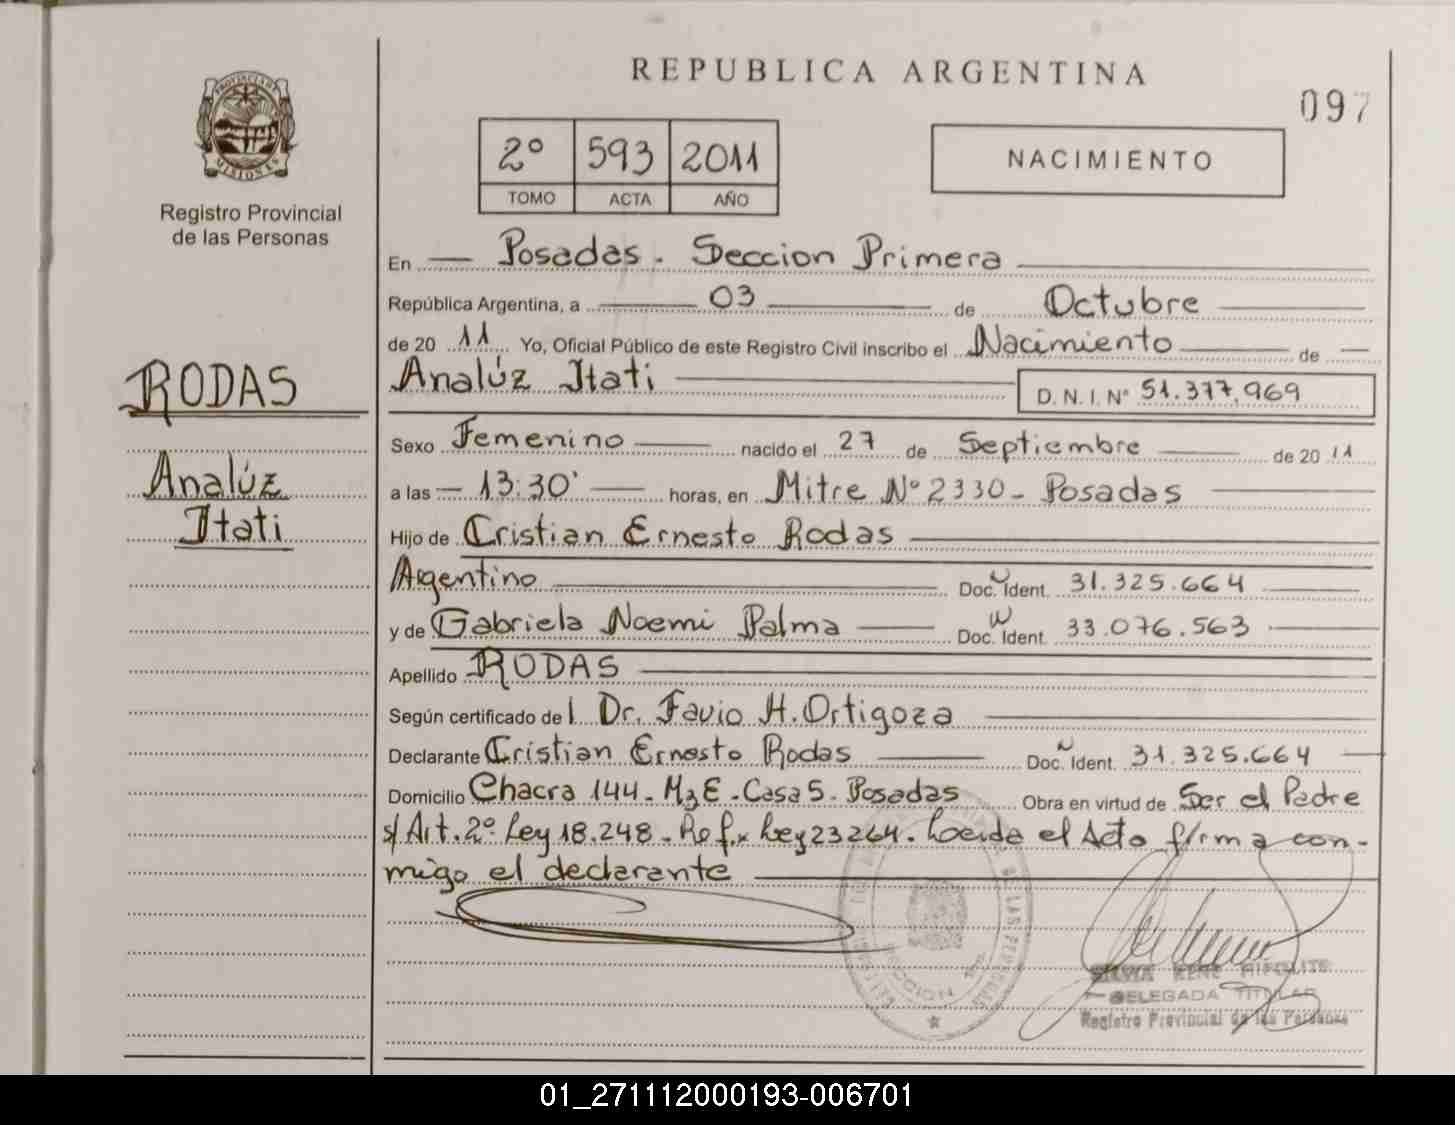 REPUBLICA ARGENTINA
097
2º 593 2011
TOMO ACTA AÑO
NACIMIENTO
PROVINCIA DE MISIONES
Registro Provincial
de las Personas
RODAS
Analúz
Itati
En Posadas. Seccion Primera
República Argentina, a 03 de Octubre
de 20 11 Yo, Oficial Público de este Registro Civil inscribo el Nacimiento de
Analúz Itati D. N. I. Nº 51.377.969
Sexo Femenino nacido el 27 de Septiembre de 20 11
a las 13:30' horas, en Mitre Nº 2330- Posadas
Hijo de Cristian Ernesto Rodas
Argentino Doc. Ident. 31.325.664
y de Gabriela Noemi Palma Doc. Ident. 33.076.563
Apellido RODAS
Según certificado del Dr. Favio H. Ortigoza
Declarante Cristian Ernesto Rodas Doc. Ident. 31.325.664
Domicilio Chacra 144- Mz E - Casa 5. Posadas Obra en virtud de Ser el Padre
s/ Art. 2º Ley 18.248- Ref. x Ley 23264. Leida el Acta firma con-
migo el declarante
SECCION 1ra.
DE LAS PERSONAS
RENE HIPOLITE
DELEGADA TITULAR
Registro Provincial de las Personas
01_271112000193-006701